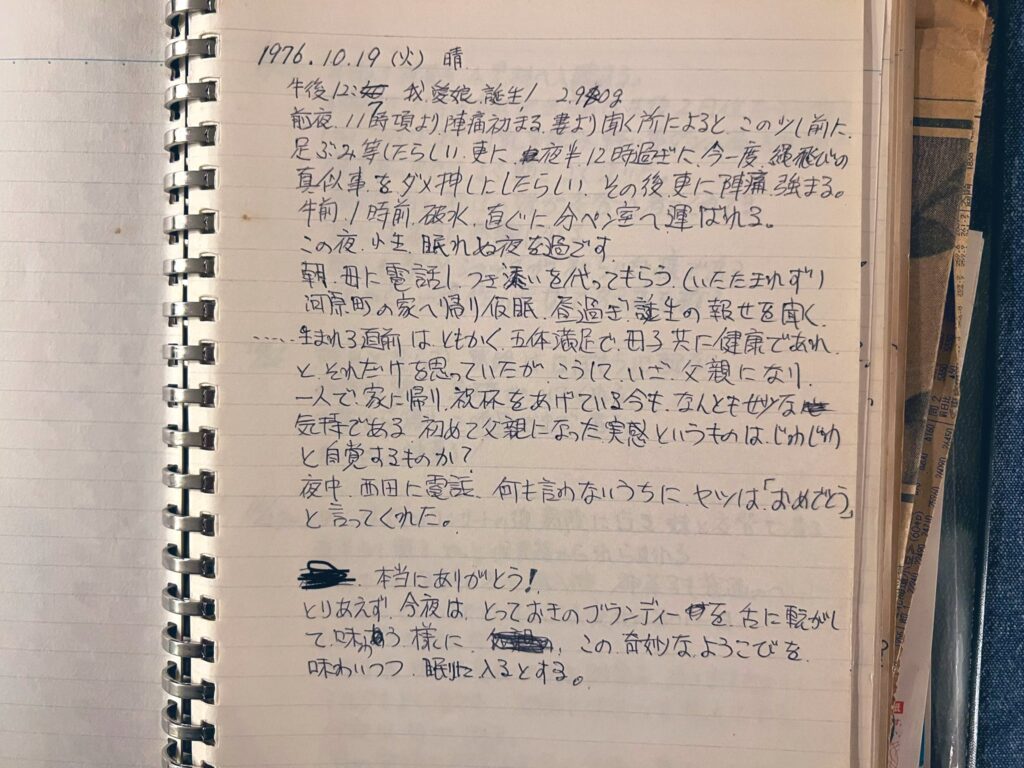 1976.10.19 (火) 晴
午後12:7 我愛娘誕生! 2.940g
前夜、11時頃より陣痛初まる、妻より聞く所によると、この少し前に、
足ぶみ等したらしい、更に、夜半12時過ぎに、今一度、縄飛びの
真似事をダメ押しにしたらしい、その後、更に陣痛、強まる。
午前、1時前、破水、直ぐに、分ベン室へ運ばれる。
この夜、小生、眠れぬ夜を過ごす
朝、母に電話し、つき添いを代ってもらう、(いたたまれず)
河原町の家へ帰り仮眠、昼過ぎ誕生の報せを聞く、
……生まれる直前は、ともかく、五体満足で、母子共に健康であれ、
と、それだけを思っていたが、こうして、いざ、父親になり、
一人で、家に帰り、祝杯をあげている今も、なんとも妙な
気持である、初めて父親になった実感というものは、じわじわ
と自覚するものか?
夜中、西田に電話、何も言わないうちに、ヤツは「おめでとう」
と言ってくれた。
、本当にありがとう!
とりあえず、今夜は、とっておきのブランディーを、舌に転がし
て、味わう様に、この、奇妙な、よろこびを、
味わいつつ、眠りに入るとする。